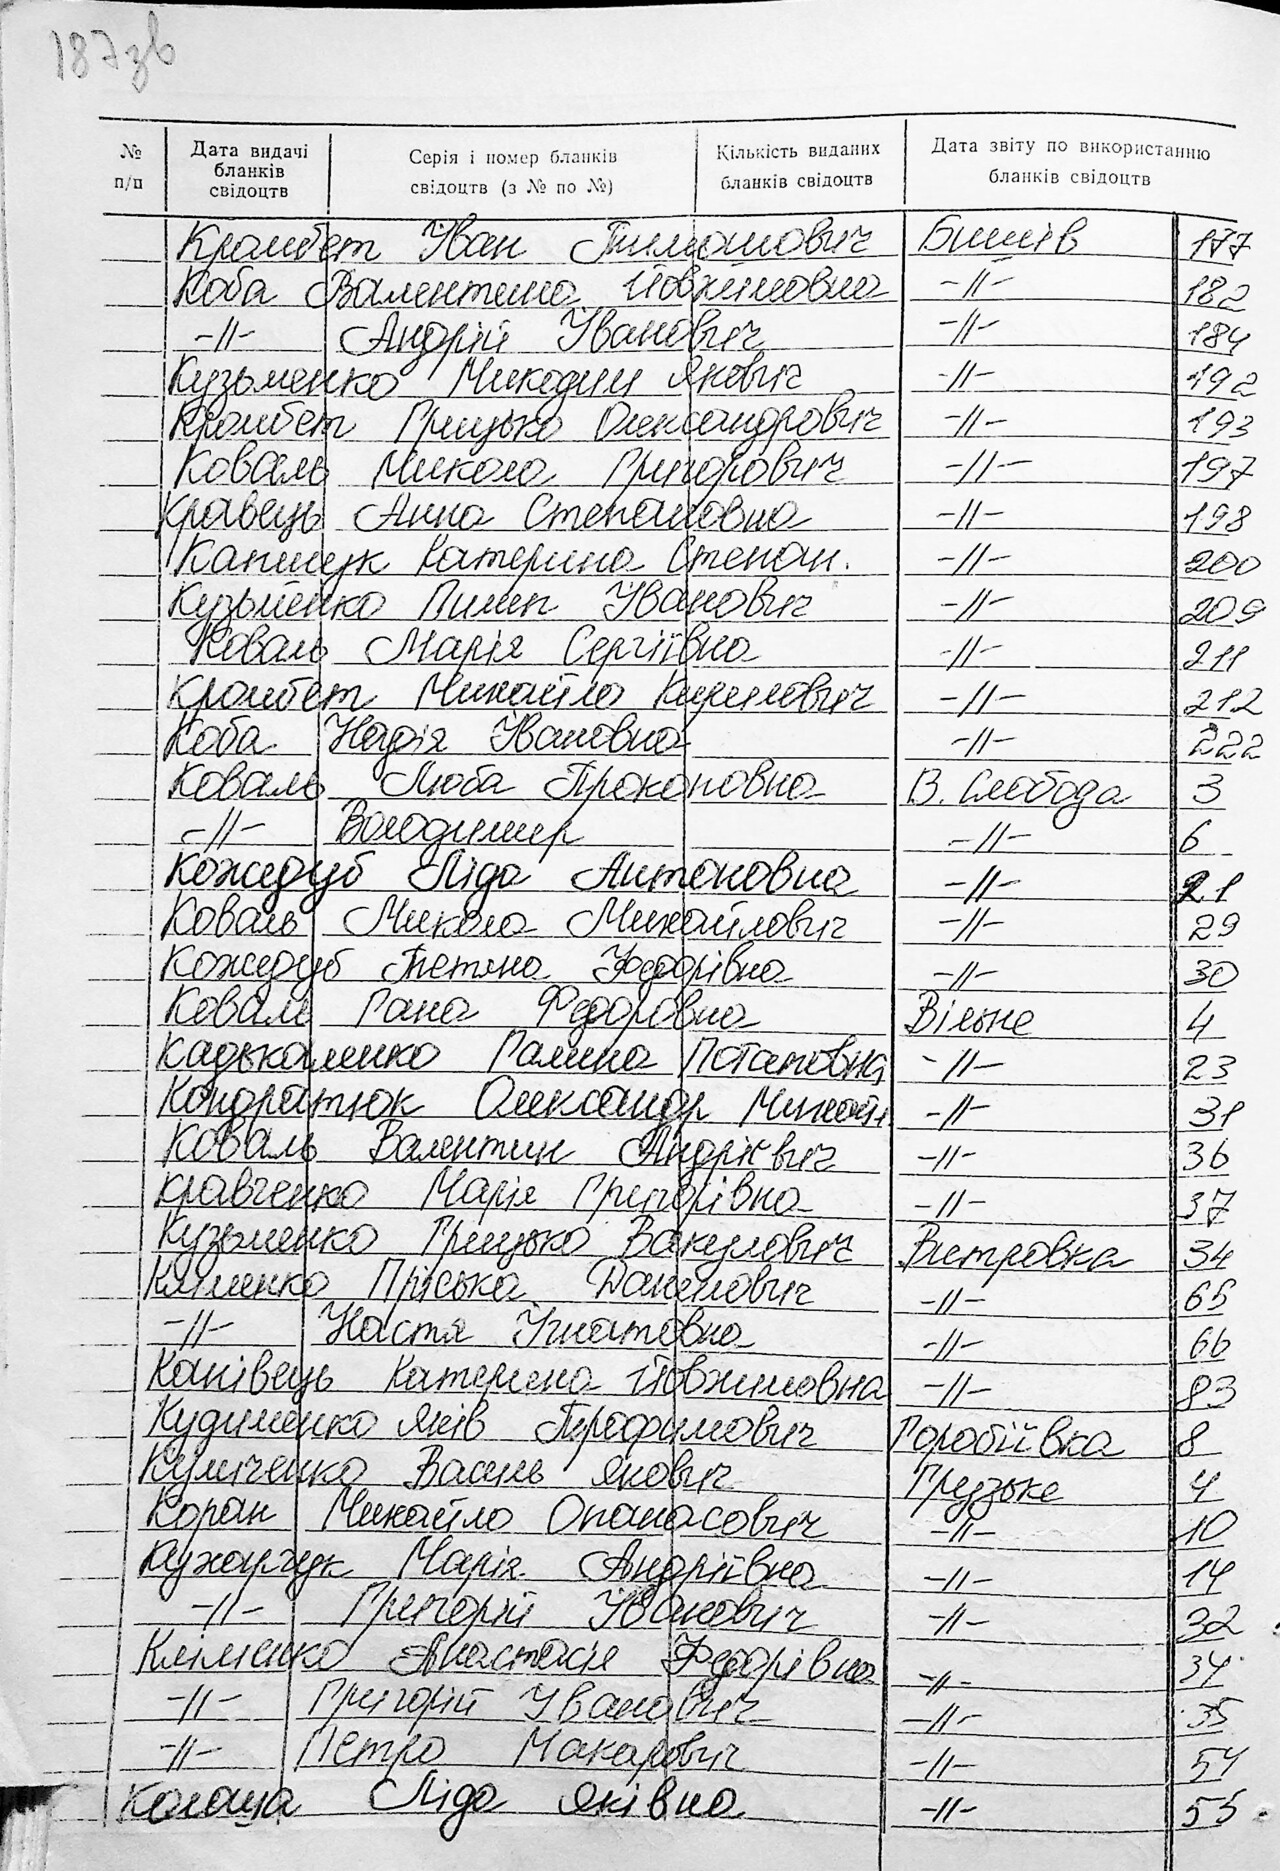 187зв
№ п/п Дата видачі бланків свідоцтв Серія і номер бланків свідоцтв (з № по №) Кількість виданих бланків свідоцтв Дата звіту по використанню бланків свідоцтв
Крамбет Іван Тимошович Бишів 177
Коба Валентина Йовхимовна -//- 182
-//- Андрій Іванович -//- 184
Кузьменко Микодим Якович -//- 192
Крамбет Грицько Олександрович -//- 193
Коваль Микола Григорович -//- 197
Кравець Анна Степановна -//- 198
Капшук Катерина Степан. -//- 200
Кузьменко Пимен Іванович -//- 209
Коваль Марія Сергіївна -//- 211
Крамбет Михайло Кирилович -//- 212
Коба Надія Івановна -//- 222
Коваль Люба Прокоповна В. Слобода 3
-//- Володимир -//- 6
Кожедуб Ліда Антоновна -//- 21
Коваль Микола Михайлович -//- 29
Кожедуб Тетяна Федорівна -//- 30
Коваль Гана Федоровна Вільне 4
Кадькаленко Галина Потаповна -//- 23
Кондратюк Олександр Михайл -//- 31
Коваль Валентин Андрієвич -//- 36
Кравченко Марія Григорівна -//- 37
Кузьменко Грицько Вакулович Витровка 34
Кліменко Пріська Данилович -//- 65
-//- Настя Ігнатовна -//- 66
Канівець Катерина Йовхимовна -//- 83
Кудименко Яків Трофимович Горобіївка 8
Куліченко Василь Якович Грузьке 4
Коран Михайло Опанасович -//- 10
Кухарчук Марія Андріївна -//- 14
-//- Григорій Іванович -//- 32
Кліменко Анастасія Федорівна -//- 34
-//- Григорій Іванович -//- 35
-//- Петро Макарович -//- 54
Колоша Ліда Яківна -//- 55